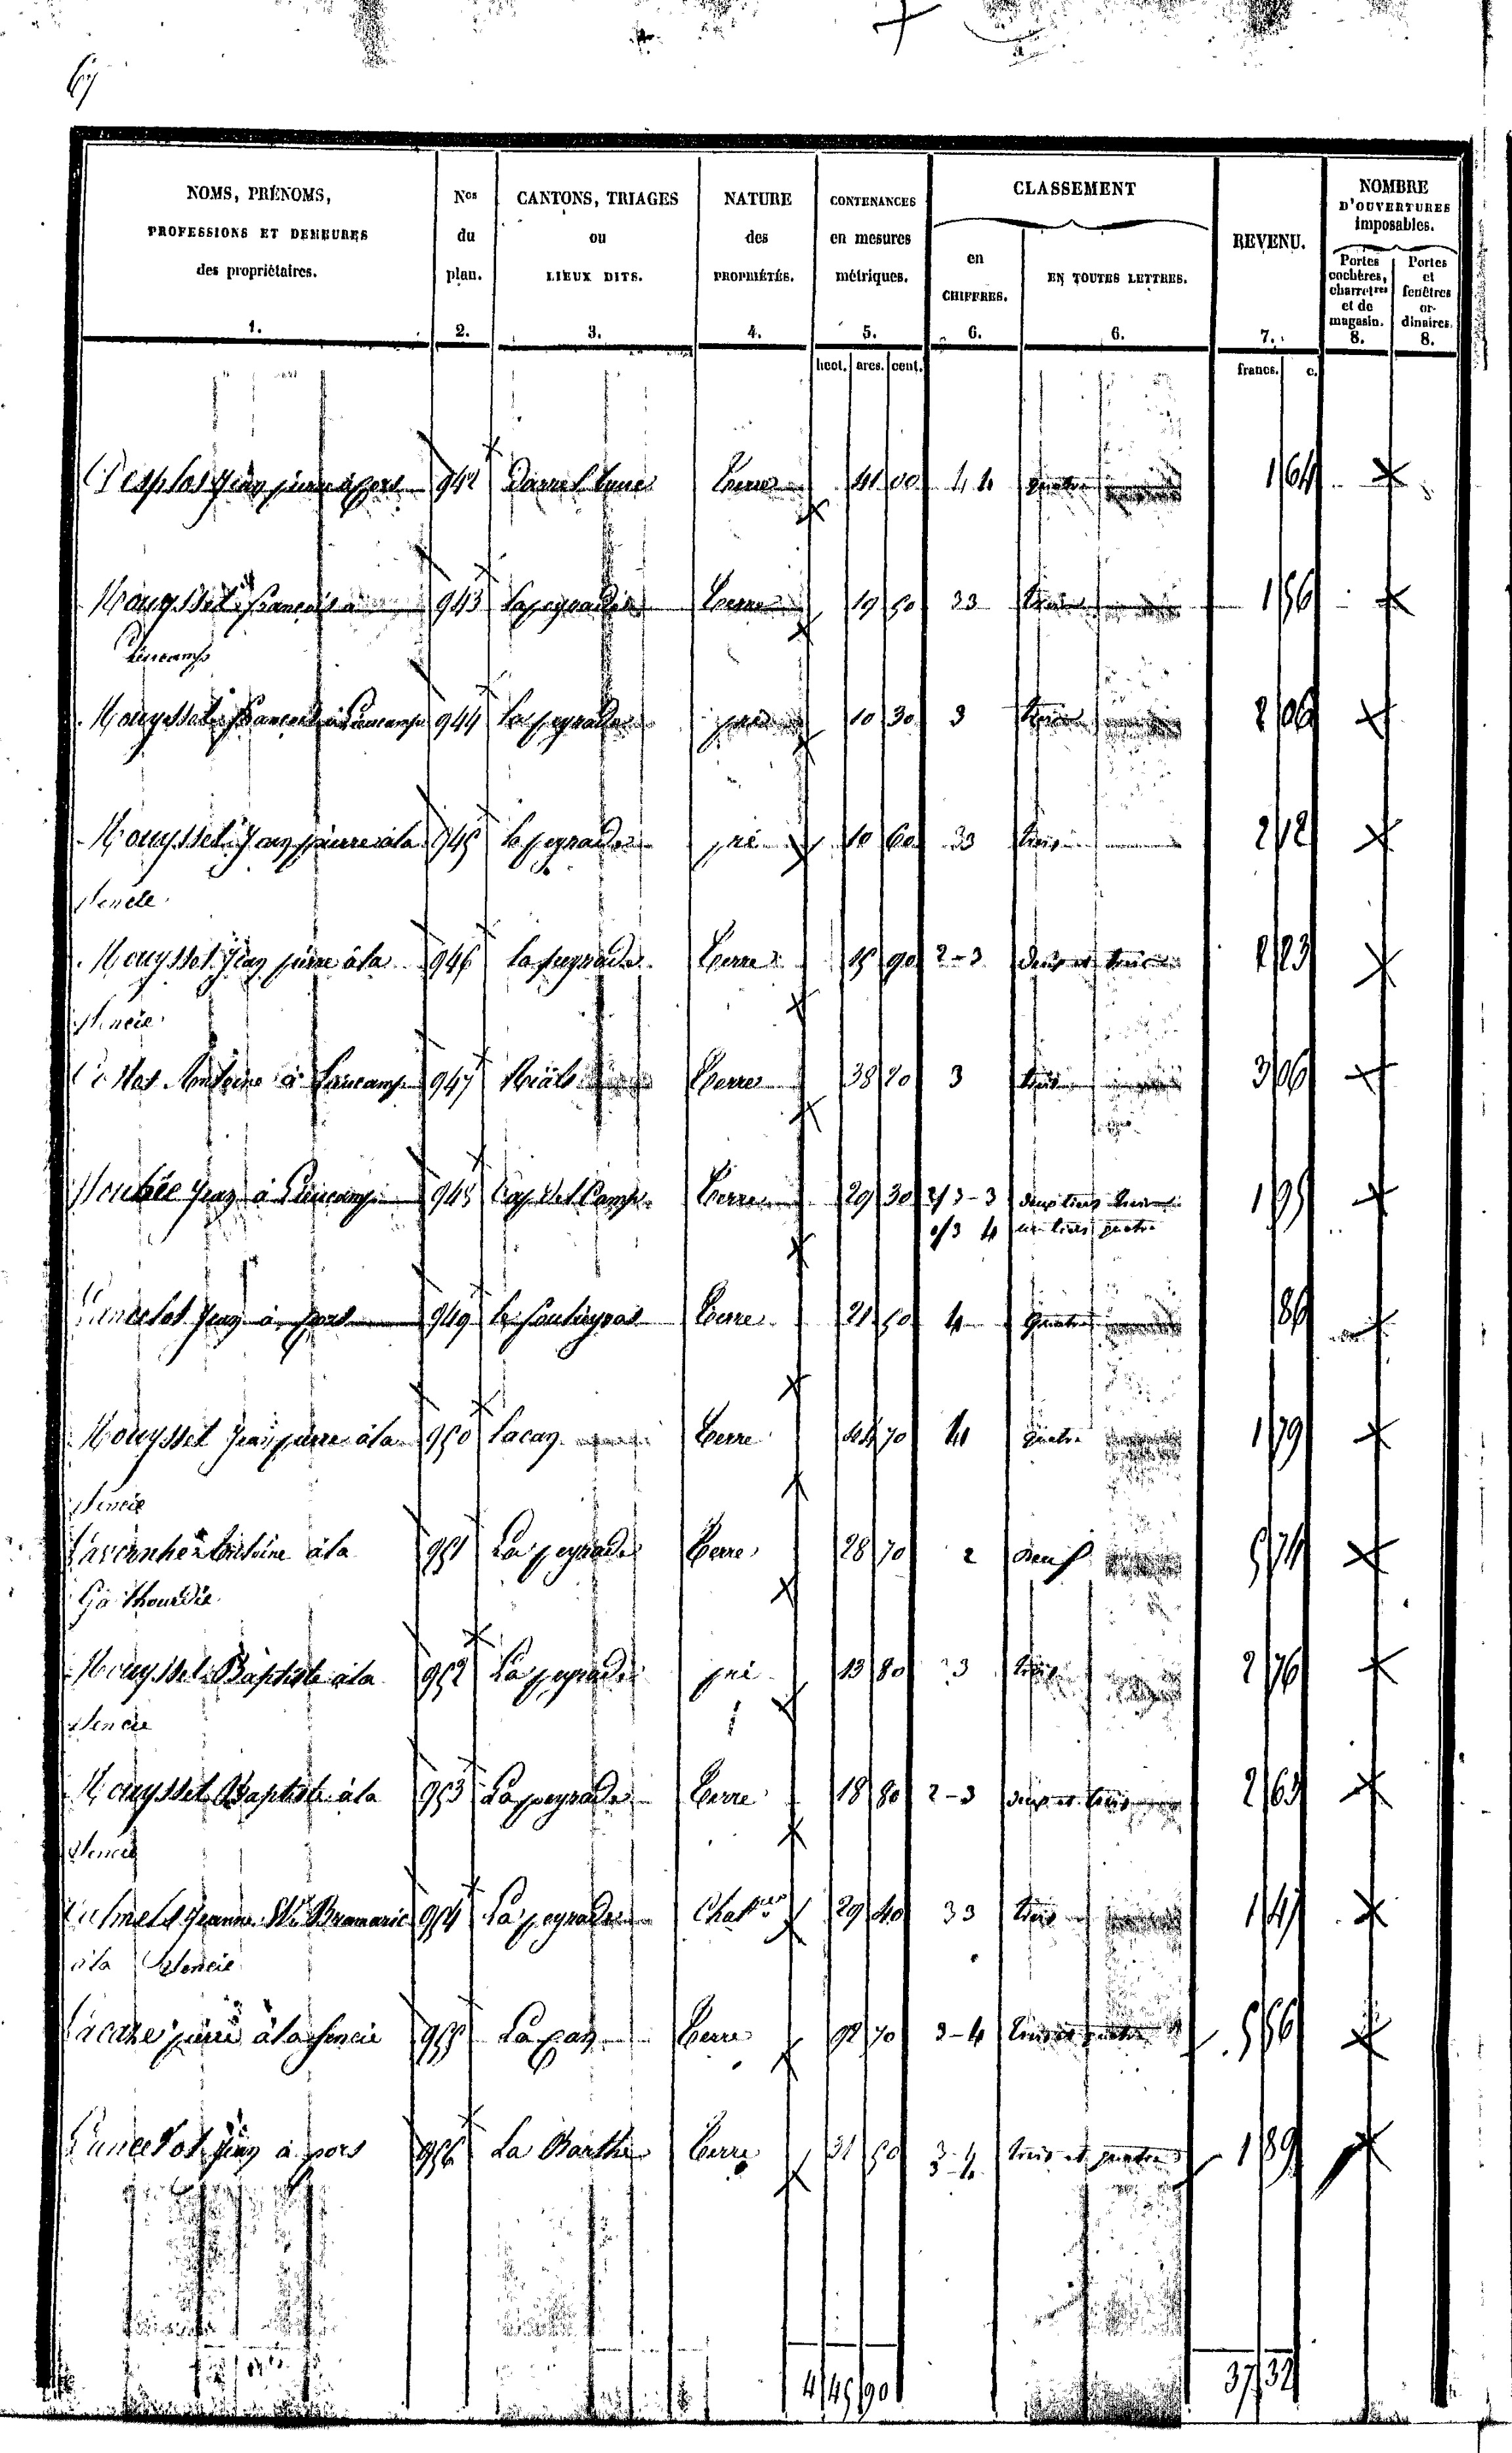 67
NOMS, PRÉNOMS,
PROFESSIONS ET DEMEURES
des propriétaires.
1.
Nos
du
plan.
2.
CANTONS, TRIAGES
ou
LIEUX DITS.
3.
NATURE
des
PROPRIÉTÉS.
4.
CONTENANCES
en mesures
métriques.
5.
CLASSEMENT
en
CHIFFRES.
6.
EN TOUTES LETTRES.
6.
REVENU.
7.
NOMBRE
D'OUVERTURES
imposables.
Portes
cochères,
charretres
et de
magasin.
8.
Portes
et
fenêtres
or-
dinaires.
8.
hect. ares. cent.
francs. c.
jean pierre à pors 942 Terre 41 00 4 quatre 1 64
Mouysset françois à 943 Lapeyrade Terre 19 50 33 trois 1 56
Puicamp
Mouysset françois à 944 Lapeyrade pré 10 30 3 trois 2 06
Mouysset Jean pierre à la 945 lapeyrade pré 10 60 33 trois 2 12
Sencie
Mouysset Jean pierre à la 946 Lapeyrade Terre 15 90 2-3 deux et trois 2 23
Sencie
Antoine à 947 Terre 38 20 3 trois 3 06
Jean à 948 Cap del Camp Terre 29 30 2/3-3 deux tiers trois 1 95
1/3 4 un tiers quatre
Lancelot Jean à pors 949 Terre 21 50 4 quatre 86
Mouysset Jean pierre à la 950 Lacan Terre 44 70 4 quatre 1 79
Sencie
Lavernhe Antoine à la 951 La peyrade Terre 28 70 2 deux 5 74
Mouysset Baptiste à la 952 La peyrade pré 13 80 3 trois 2 76
Sencie
Mouysset Baptiste à la 953 La peyrade Terre 18 80 2-3 deux et trois 2 63
Sencie
Jeanne Ve Bramarie 954 La peyrade Chatier 29 40 33 trois 1 47
à la Sencie
Lacaze pierre à la Sencie 955 La Can Terre 92 70 3-4 trois et quatre 5 56
Lancelot Jean à pors 956 La Barthe Terre 31 50 3-4 trois et quatre 1 89
3-4
4 45 90 37 32